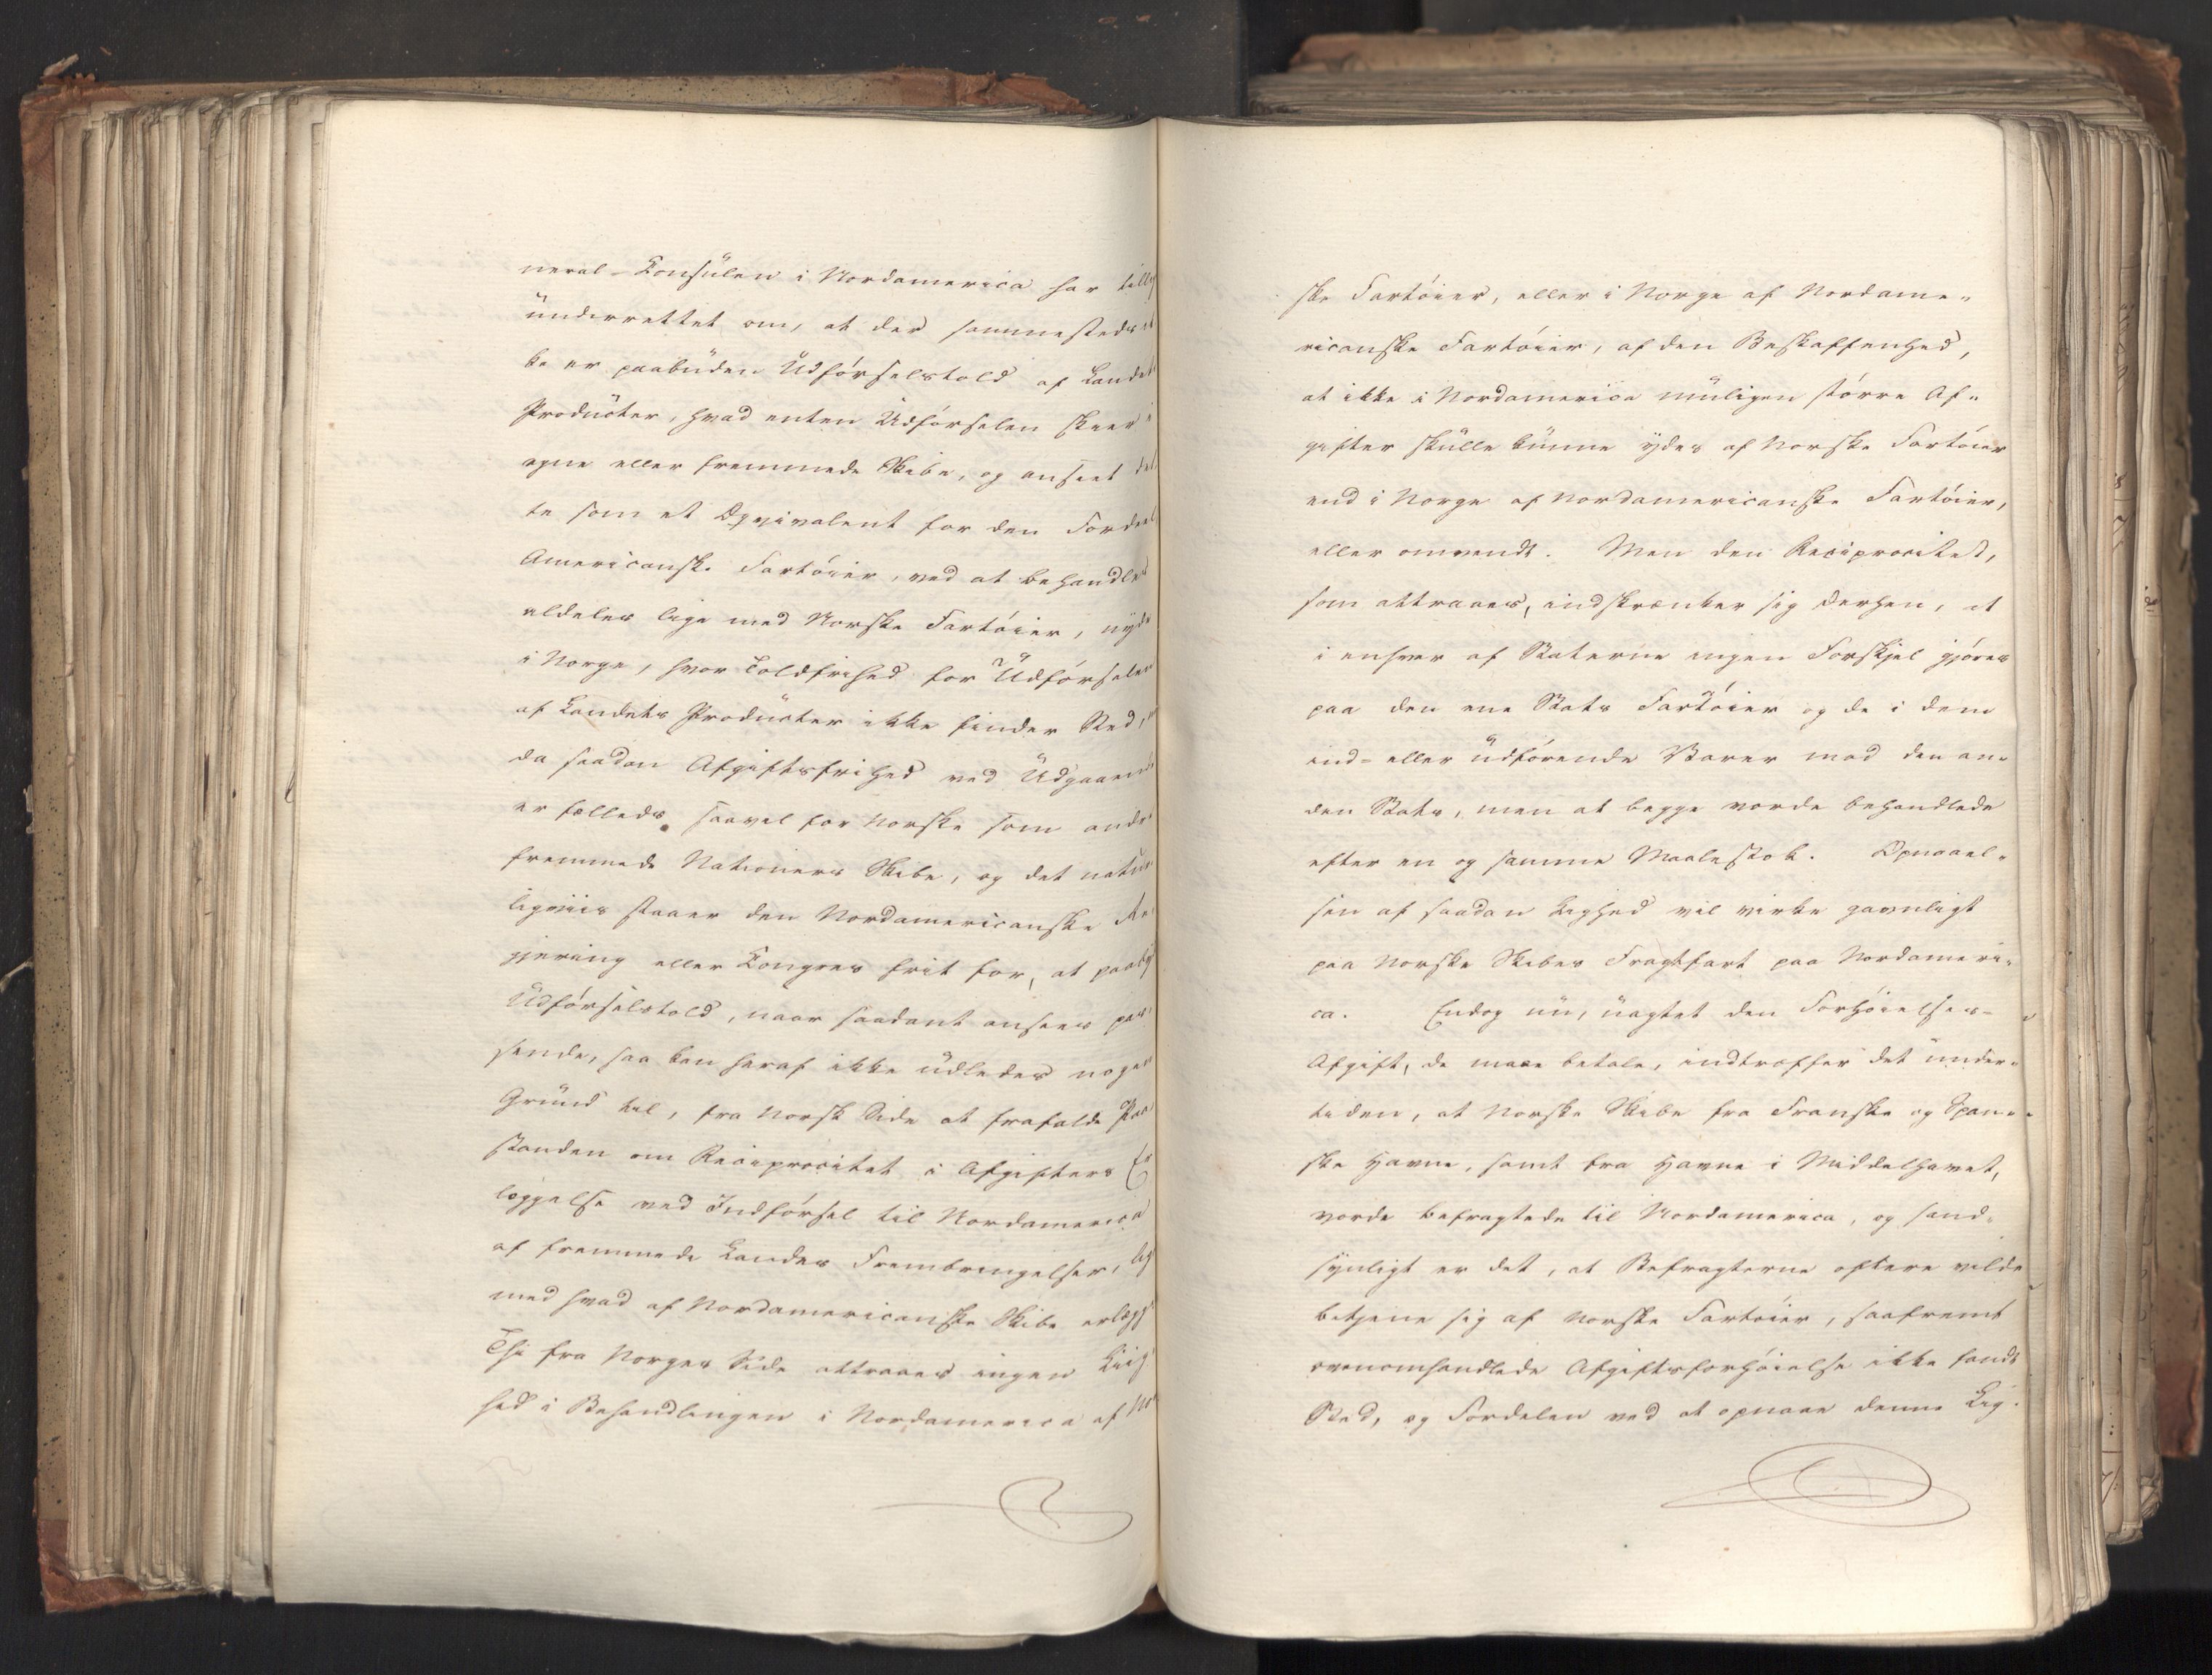 neral-Consülen i Nordamerica har tillig
ünderrettet om, at der sammesteds ik
ke er paabüden Üdförselstold af Landets
Prodücter, hvad enten Üdförselen skeer i
egne eller fremmede Skibe, og anseet det
te som et Eqvivalent for den Fordeel
Americanske Fartöier, ved at behandles
aldeles lige med Norske Fartöier, nyde
i Norge, hvor Toldfrihed for Üdförselen
af Landets Prodücter ikke finder Sted,
da saadan Afgiftsfrihed ved Üdgaaende
er fælleds saavel for Norske som andre
fremmede Nationers Skibe, og det natür
ligviis staaer den Nordamericanske Re
gjering eller Congres frit for, at paaby
Üdförselstold, naar saadant ansees pas
sende, saa kan heraf ikke üdledes nogen
Gründ til, fra Norsk Side at frafalde Paa
standen om Reciprocitet i Afgifters Er
læggelse ved Indförsel til Nordamerica
af fremmede Landes Frembringelser, lig
med hvad af Nordamericanske Skibe erlægg
Thi fra Norges Side attraaes ingen Liig
hed i Behandlingen i Nordamerica af Nor
ske Fartöier, eller i Norge af Nordame-
ricanske Fartöier, af den Beskaffenhed,
at ikke i Nordamerica müligen större Af-
gifter skülle künne ydes af Norske Fartöier
end i Norge af Nordamericanske Fartöier,
eller omvendt. Men den Reciprocitet,
som attraaes, indskrænker sig derhen, at
i enhver af Staterne ingen Forskjel gjöres
paa den ene Stats Fartöier og de i dem
ind- eller üdförende Varer mod den an-
den Stats, men at begge vorde behandlede
efter en og samme Maalestok. Opnaael-
sen af saadan Lighed vil virke gavnligt
paa Norske Skibes Fragtfart paa Nordameri-
ca. Endog nü, üagtet den Forhöielses-
Afgift, de maae betale, indtræffer det ünder-
tiden, at Norske Skibe fra Franske og Span-
ske Havne, samt fra Havne i Middelhavet,
vorde befragtede til Nordamerica, og sand-
synligt er det, at Befragterne oftere vilde
betjene sig af Norske Fartöier, saafremt
ovenomhandlede Afgiftsforhöielse ikke fandt
Sted, og Fordelen ved at opnaae denne Lig-